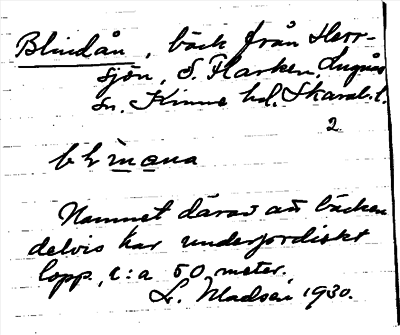 Blindån, bäck från Herr-
sjön, S. Flarken, Lugnås
sn, Kinne hd, Skarab. l.
2
blinana
Namnet därav att bäcken
delvis har underjordiskt
lopp, c:a 50 meter.
L. Madsén 1930.